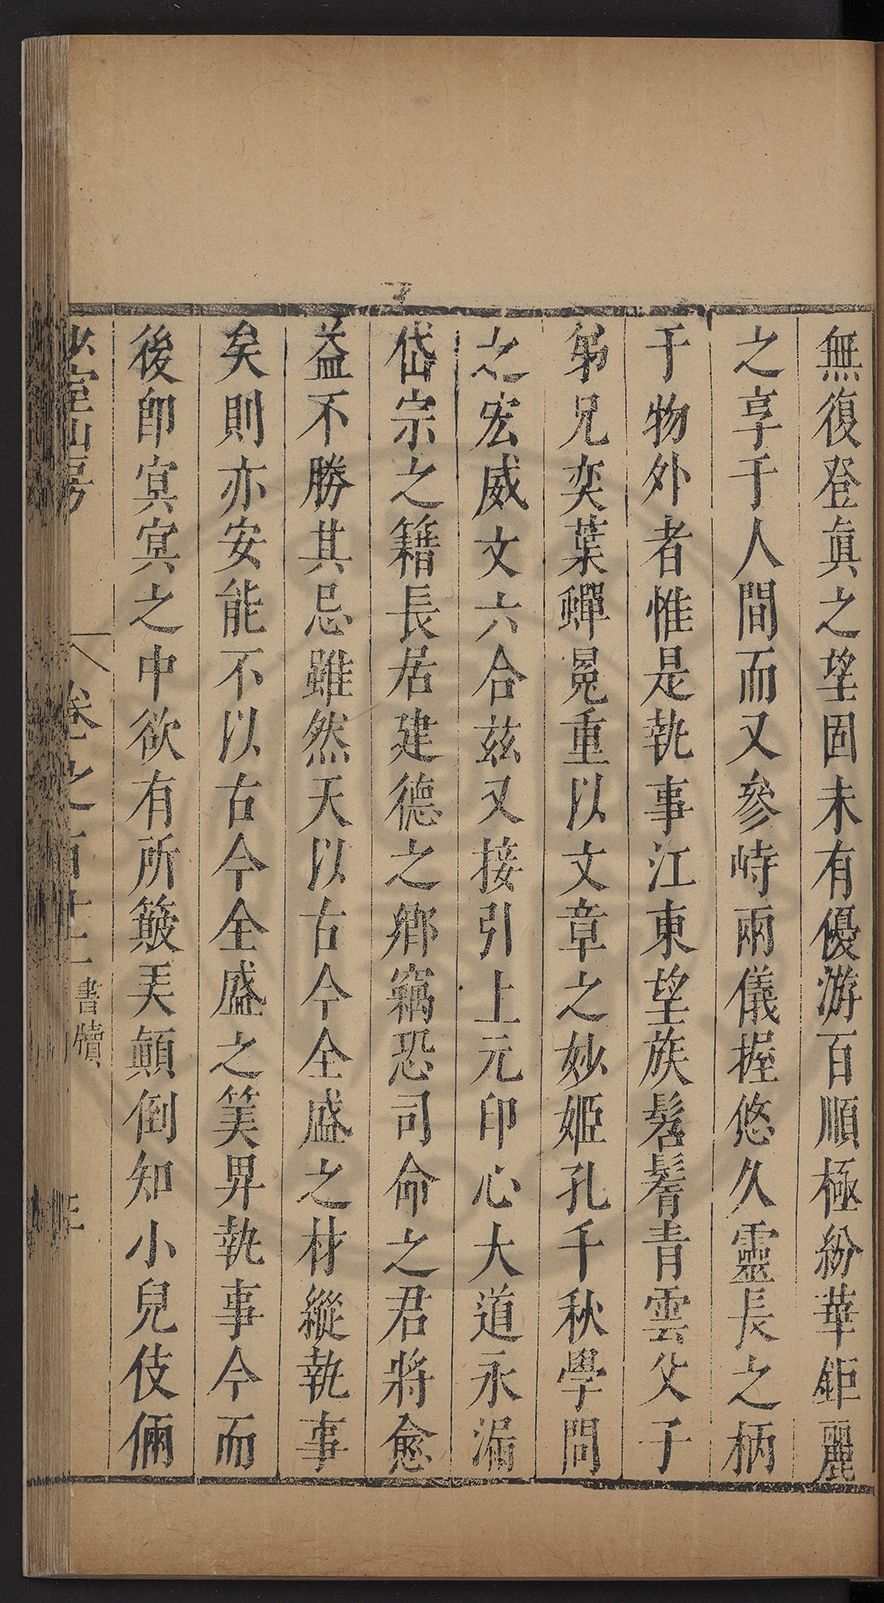 無復登眞之望固未有優游百順極紛華鉅麗
之享于人間而又參峙兩儀握悠久靈長之柄
于物外者惟是執事江東望族髫鬌青雲父子
弟兄奕葉蟬冕重以文章之妙姬孔千秋學問
之宏威文六合茲又接引上元印心大道永漏
岱宗之籍長居建德之鄉竊恐司命之君將愈
益不勝其忌雖然天以古今全盛之材縱執事
矣則亦安能不以古今全盛之筭畀執事今而
後即冥冥之中欲有所簸弄顛倒知小兒伎倆
少室山房
卷之百十二
書牘